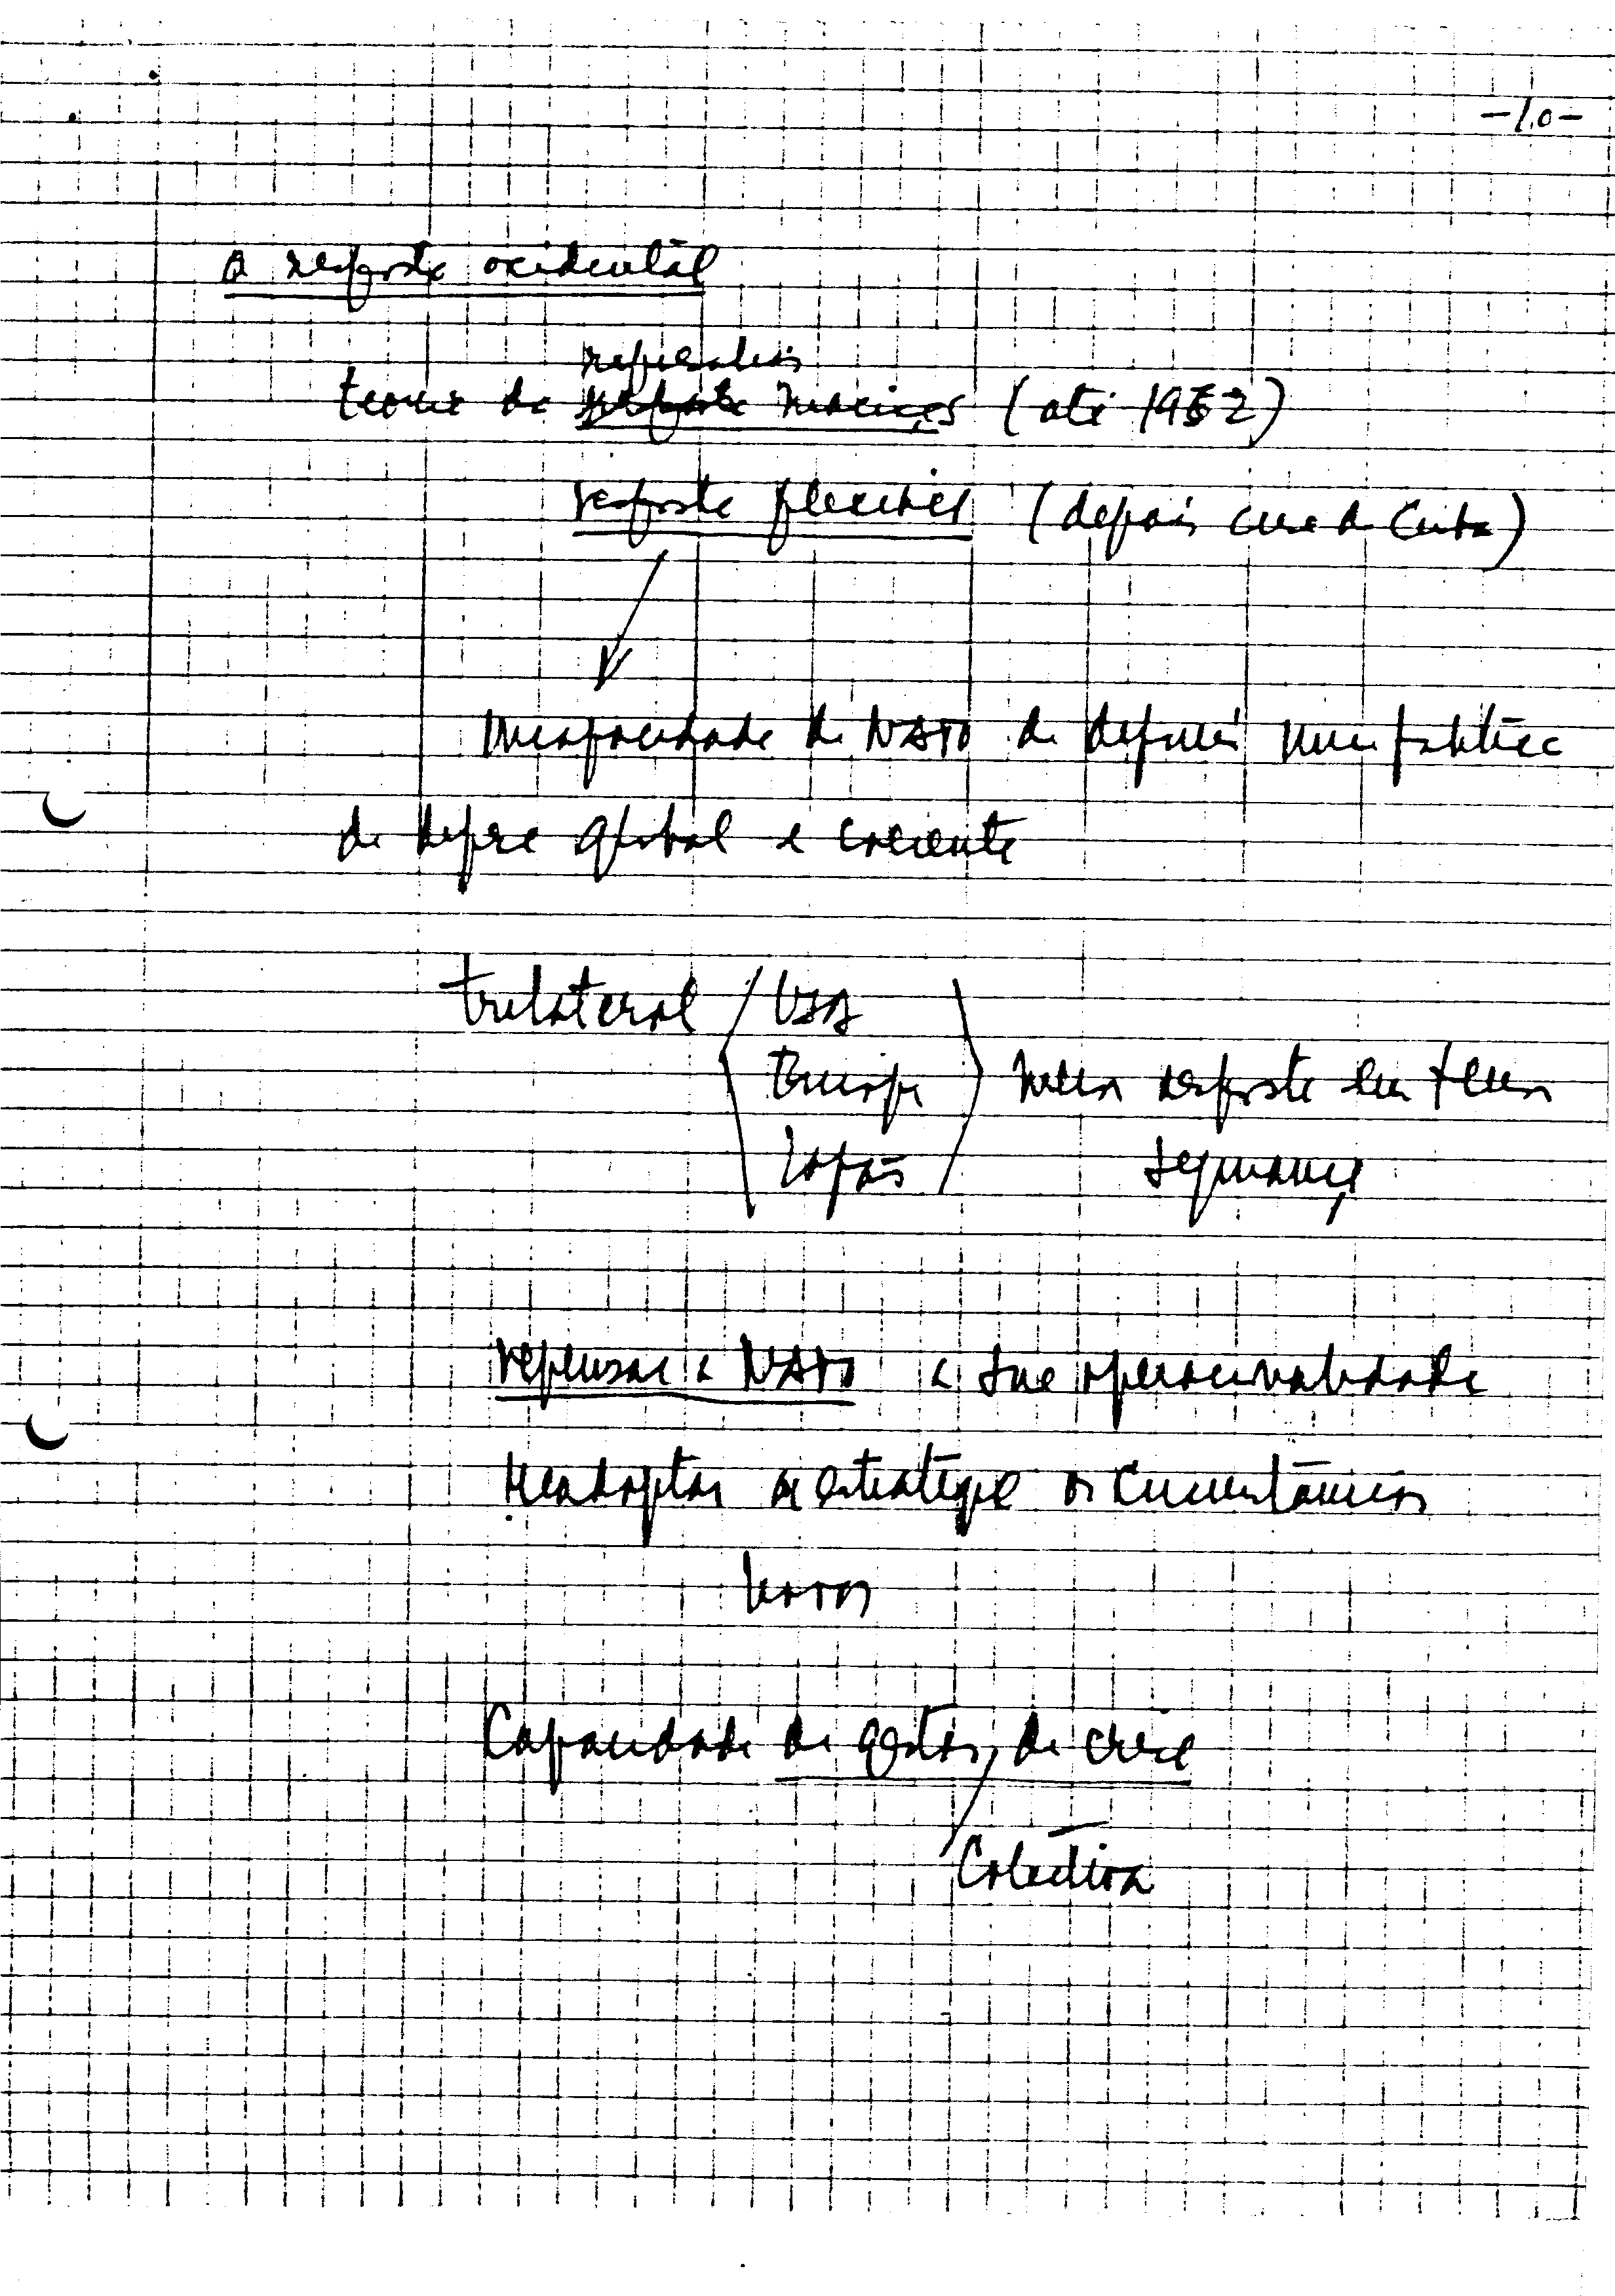 -10-
a resposta ocidental
represálias
teoria da resposta maciças (até 1962)
resposta flexivel (depois crise de Cuba)
incapacidade da NATO de definir uma politica
de defesa global e coerente
trilateral USA
Europa nova resposta em
Japão segurança
repensar a NATO a sua operacionalidade
readaptar a estratégia às circunstâncias
novas
Capacidade de gestão de crise
Colectiva